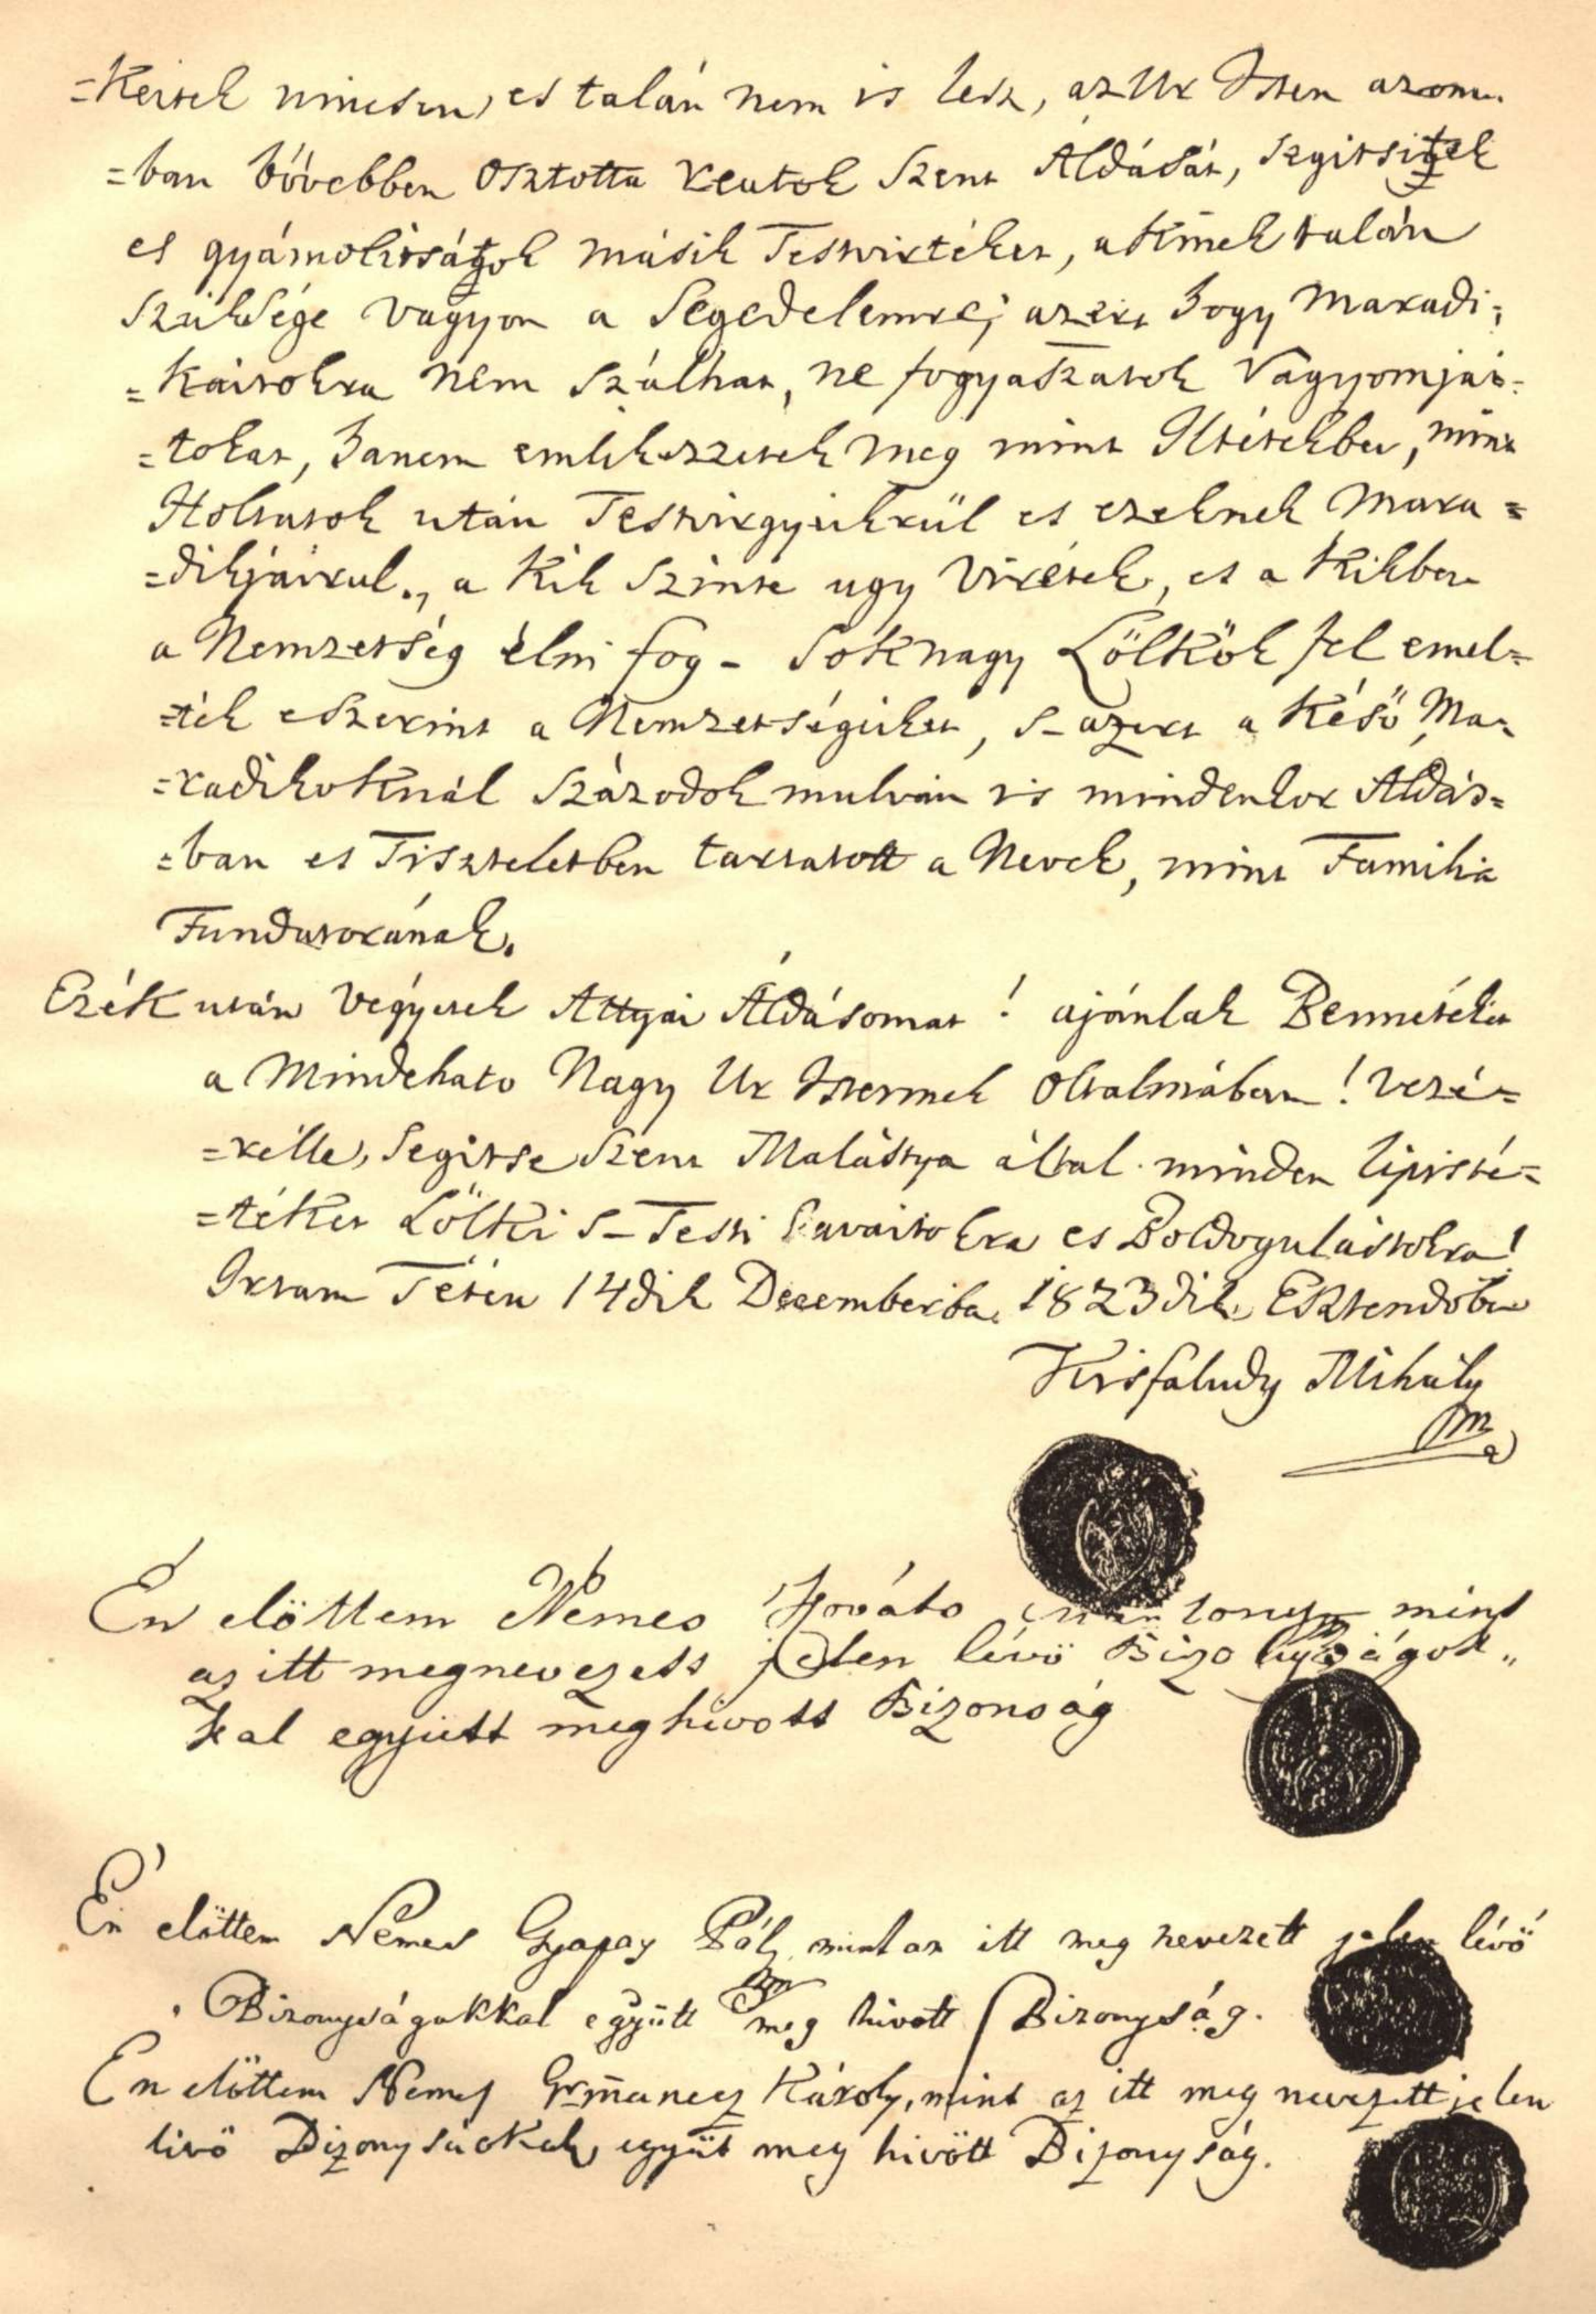 =keitek nincsen, es talán nem is lesz, az Ur Isten azom.
=ban bövebben osztotta reátok Szent Áldását, segitsitek
es gyámolitsátok másik Testvirteket, a kinek talán
szüksége vagyon a Segedelemre; azért hogy maradi;
=kaitokra nem szálhat, ne fogyaszatok Vagyomjai-
=tokat, hanem emlikezzetek meg mint Iltetekbe, mint
Holtatok után Testvirgyeikrül es ezeknek Mara=
=dikjairul., a kik szinte ugy Viretek, es a kikben
a Nemzetség élni fog - Sok nagy Lölkök fel emel=
=ték eszerint a Nemzetségüket, s-azert a késö Ma-
=radikoknál századok mulván is mindenkor Áldás=
=ban es Tiszteletben tartatott a Nevek, mint Familia
Fundatorának.
Ezék után vegyetek Attyai Áldásomat! ajánlak Benneteket
a Mindehato Nagy Ur Istennek oltalmában! Vezé=
=rélle, Segitse Szent Malástya által minden lipisté=
=téket Lölki s-Testi Javaitokra es Boldogulástokra!
Irtam Tétén 14dik Decemberbe, 1823dik Esztendöbe
Kisfaludy Mihály
mp
Én elöttem Nemes Hováts mint
az itt megnevezett jelen lévö Bizonyságok„
kal együtt meghivott Bizonság
Én elöttem Nemes Gyapay Pál, mint az itt meg nevezett jelen lévö
Bizonyságokkal együtt meg hivott Bizonyság.
Én elöttem Nemes Károly, mint az itt meg nevezett jelen
livö Bizonysackal együt meg hivött Bizonyság.